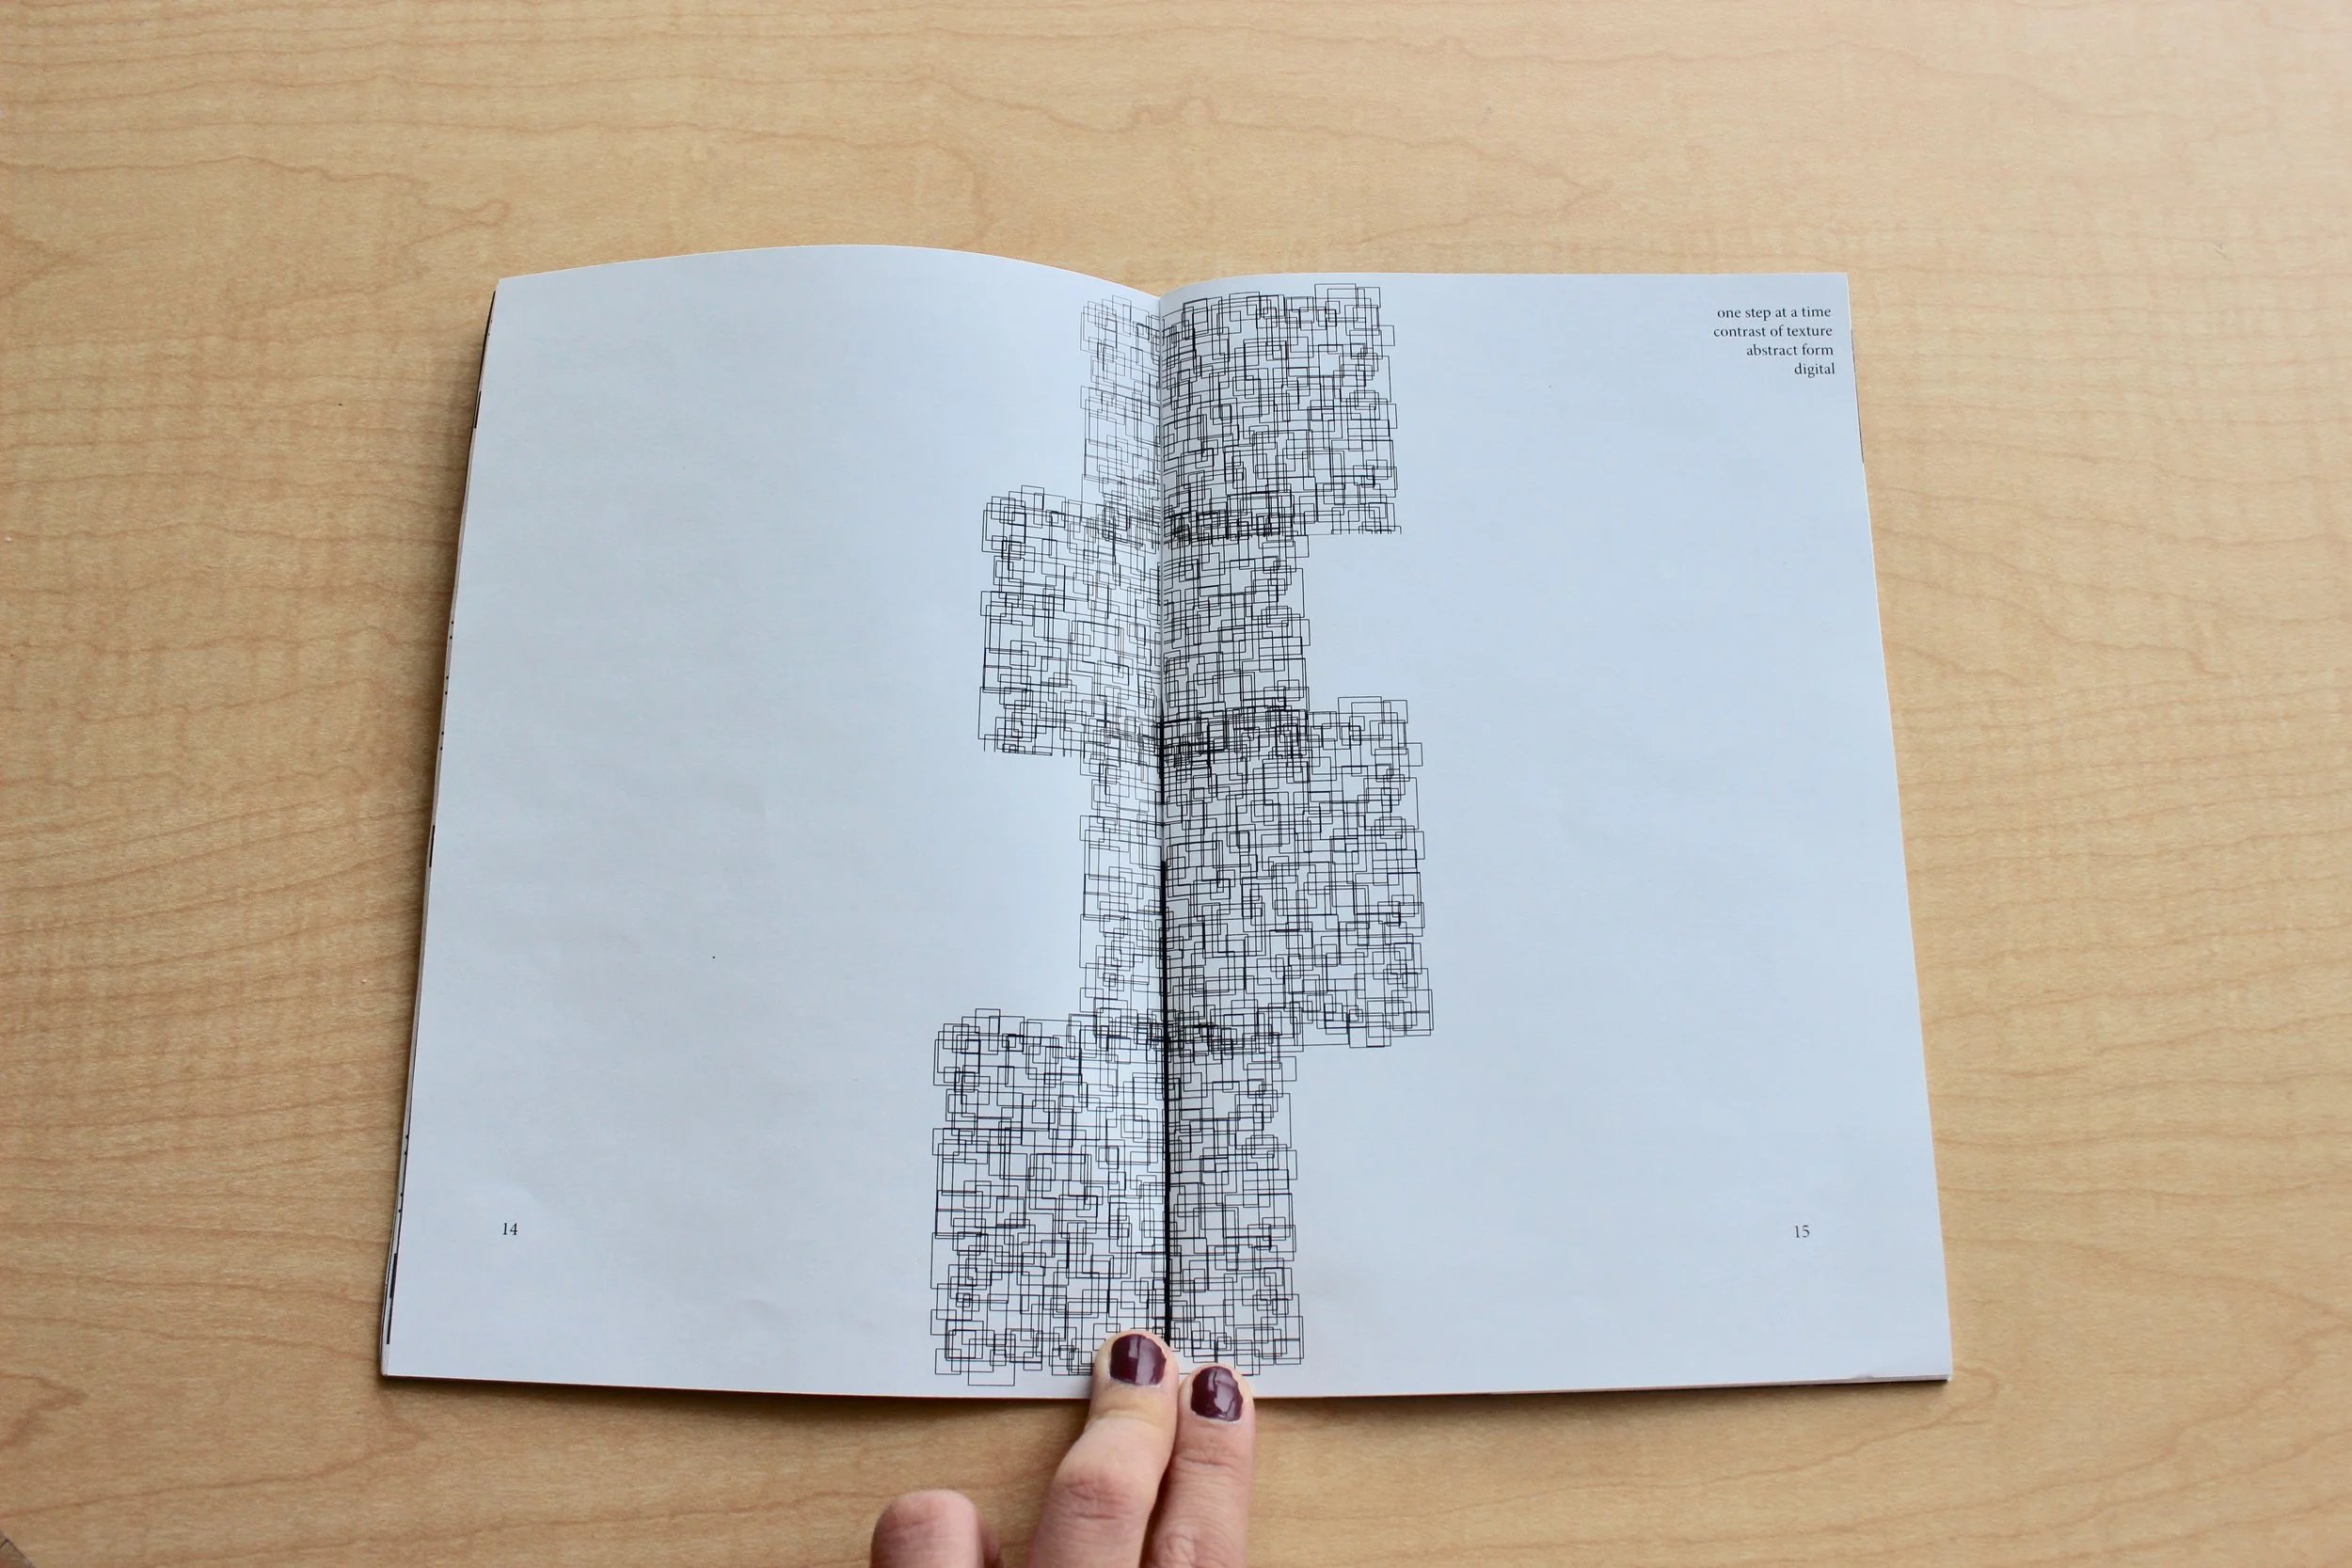 one step at a time
contrast of texture
abstract form
digital
14
15